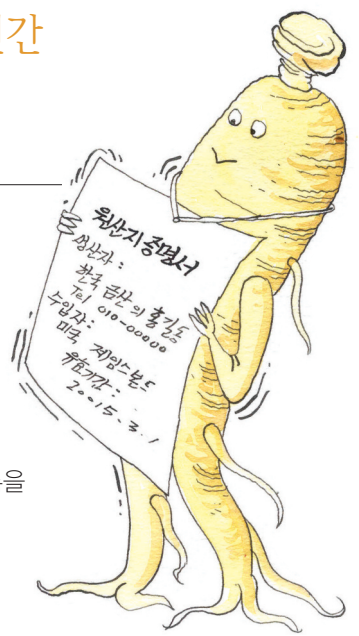 간
원산지증명서
생산자 :
한국 금산의 홍길동
Tel 010-00000
수입자 :
미국 제임스본드
유효기간 :
20015.3.1
을